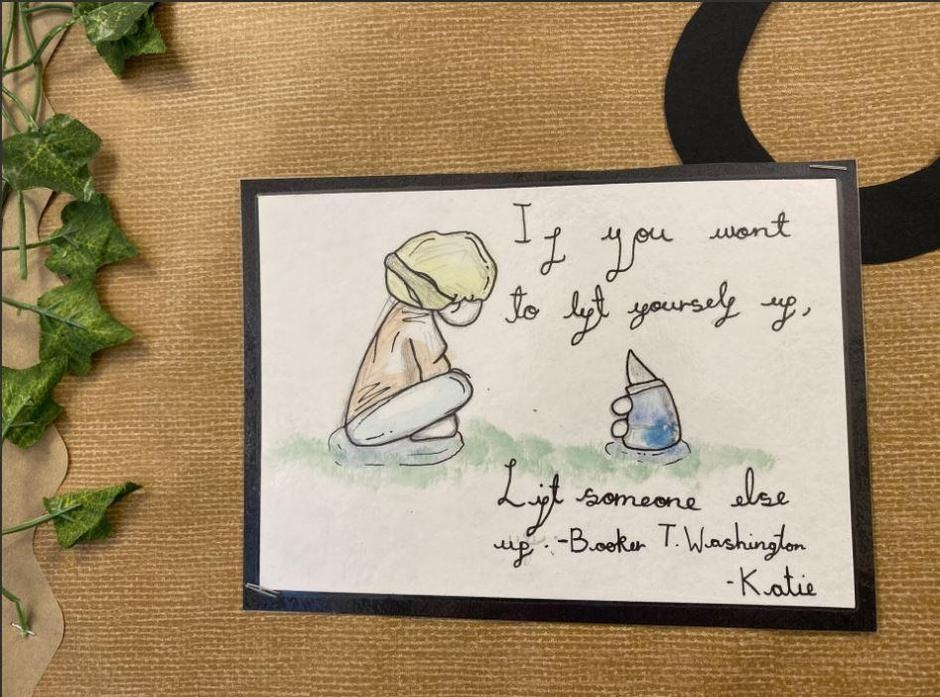 If you want
to lift yourself up,
Lift someone else
up. -Booker T. Washington
-Katie